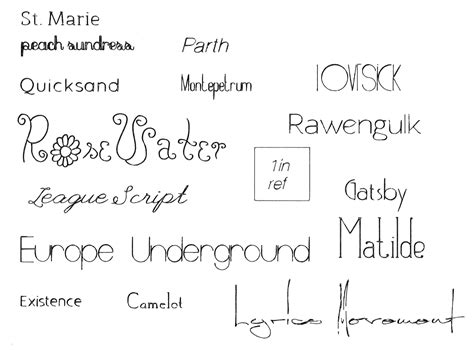 St. Marie
peach sundress
Parth
Quicksand
Montepetrum
LOVESICK
Rawengulk
RoseWater
1in
ref
League Script
Gatsby
Matilde
Europe Underground
Existence
Camelot
Lyrics Movement